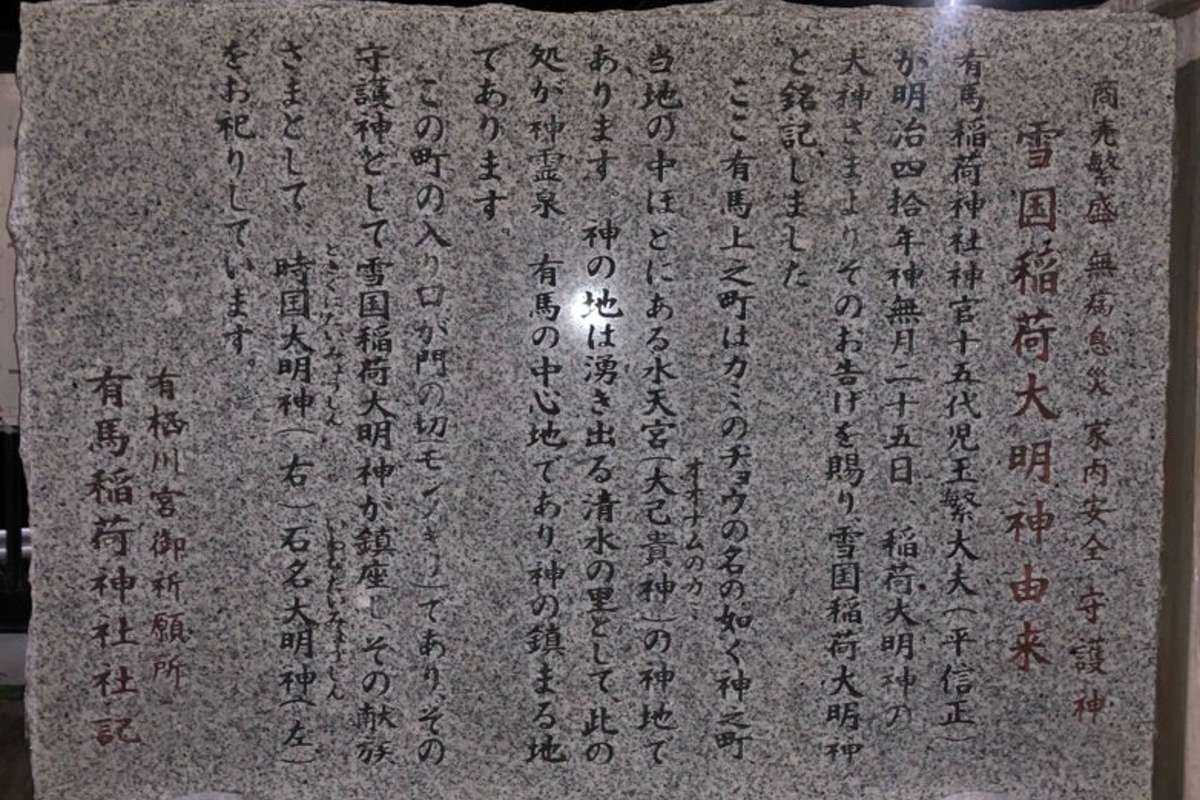 商売繁盛 無病息災 家内安全 守護神
雪国稲荷大明神由来
有馬稲荷神社神官十五代児玉繁大夫(平信正)
が明治四拾年神無月二十五日、稲荷大明神の
大神さまよりそのお告げを賜り雪国稲荷大明神
と銘記しました
ここ有馬上之町はカミのチョウの名の如く神之町
オオナムのカミ
当地の中ほどにある水天宮(大己貴神)の神地で
あります 神の地は湧き出る清水の里として、此の
処が神霊泉 有馬の中心地であり、神の鎮まる地
であります。
この町の入り口が門の切(モンノキリ)であり、その
守護神として雪国稲荷大明神が鎮座し、その献族
ときくにだいみょうじん いわなだいみょうじん
さまとして、時国大明神(右)石名大明神(左)
をお祀りしています。
有栖川宮御祈願所
有馬稲荷神社社記